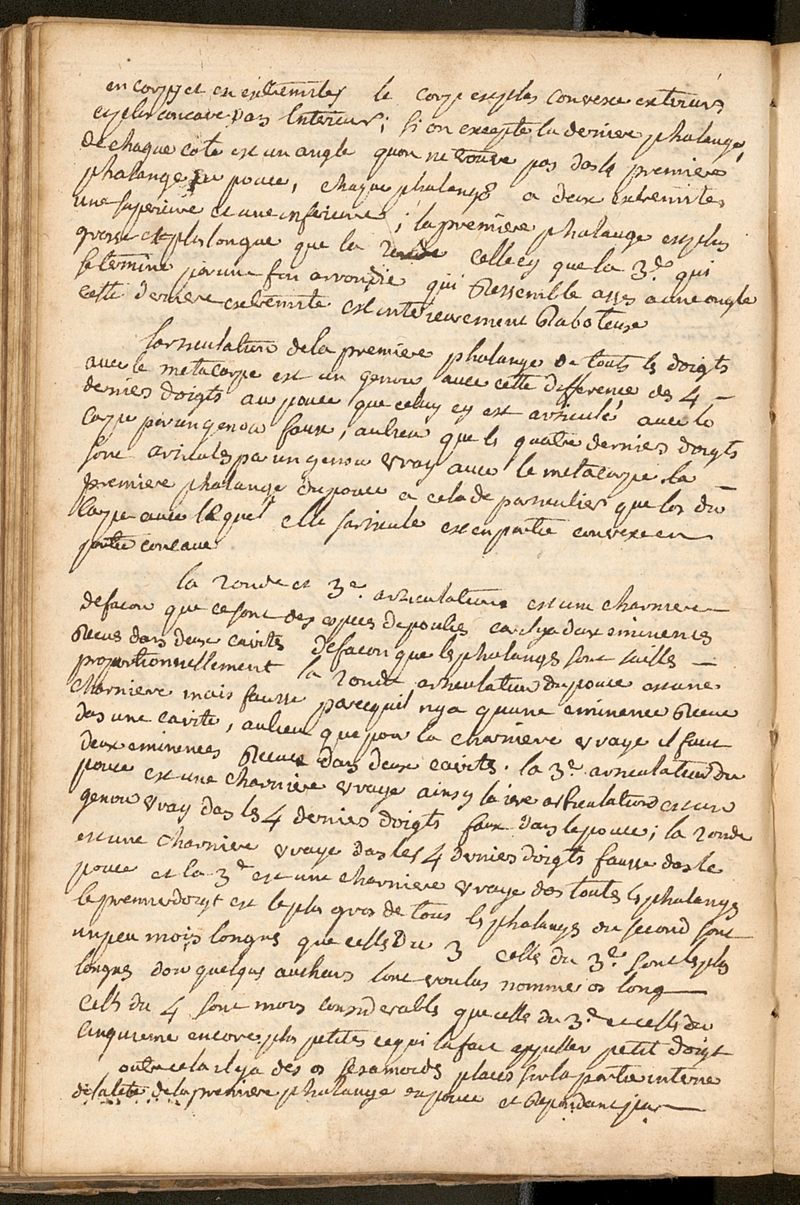 en corps et en extremites le corps est plus convexe exterieurs
et plus concave pas Interieurs; si on excepte la derniere phalange,
de chaque coté est un angle quon ne trouve pas das la premiere
phalange du pouce, chaque phalange a deux extremites
une superieure et une inferieure; la premiere phalange est plus
grosse et plus longue que la 2onde celle cy que la 3.e qui
se termine par une fin arrondie qui Ressemble asses a une ongle
cette derniere extremite est interieurement Raboteuse
larticulation de la premiere phalange de touts les doigts
avec le metacarpe est un genou avec cette difference des 4
derniers doigts au pouce que celuy cy est articulé avec le
carpe par un genou faux, aulieu que les quatre derniers doigts
sont articules par un genou vray avec le metacarpe la
premiere phalange du pouce a cela de particulier que los du
carpe avec lequel elle sarticule est en partie convexe en
partie concave
la 2onde et 3.e articulations est une charniere
defacon que ce sont des especes de poulies car il ya deux eminences
Recues dans deux cavités defacon que les phalanges sont taillés
proportionnellement la 2onde articulation du pouce est une
charniere mais fausse parcequil nya quune eminence Recue
das une cavite, aulieu que pour la charniere vraye il faut
deux eminences Recues dans deux cavités. la 3.e articulation du
pouce est une charniere vraye ainsy la 1ere articulation est un
genou vray das les 4 derniers doigts faux dans le pouce; la 2onde
est une charniere vraye das les 4 derniers doigts fausse das le
pouce et la 3.e est une charniere vraye das toutes les phalanges
le premier doigt est le plus gros de tous les phalanges du second sont
un peu mois longues que celles Du 3 celles du 3.e sont les plus
longues dou quelques autheurs lont voulus nommer os long
Cells du 4 sont mois considerables que celles du 3.e et celles du
cinquieme encore plus petites ce qui la fait appeller petit doigt
outre cela il ya des os sesamoides placés sur la partie interne
de la tete de la premiere phalange du pouce et cependant par